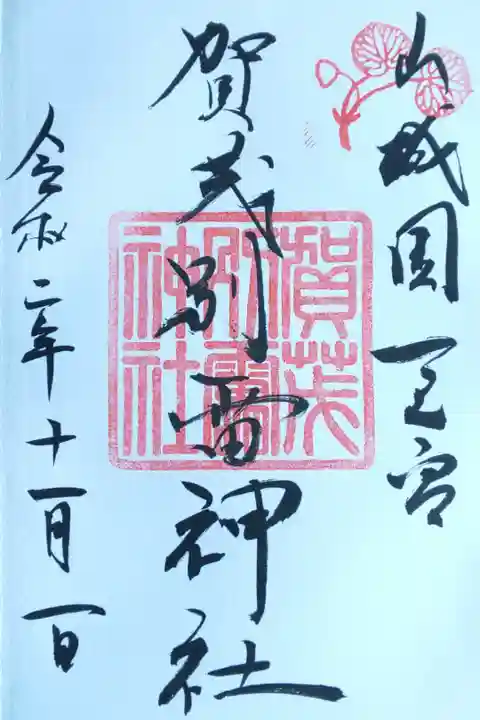 山城国一之宮
賀茂別雷神社
賀茂
別雷
神社
令和二年十一月一日